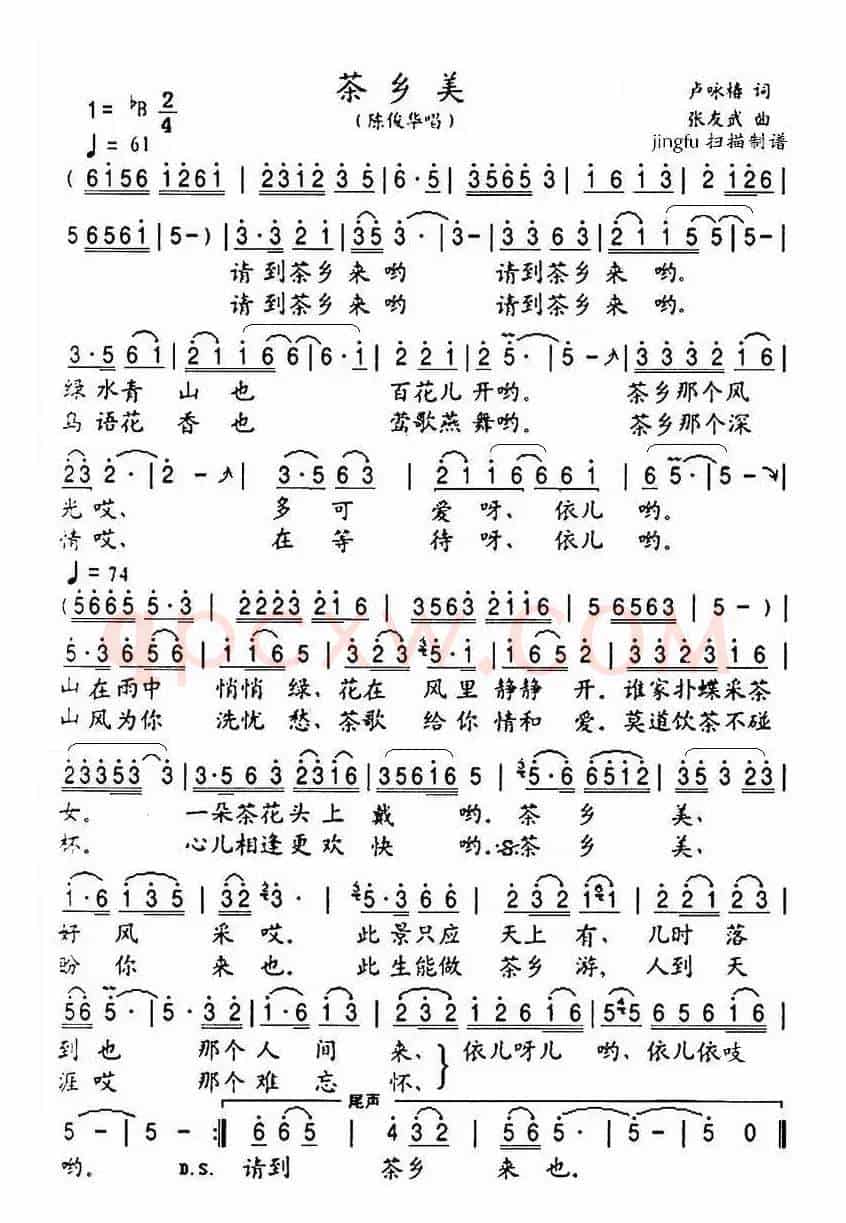 茶乡美
(陈俊华唱)
1= ♭B 2/4
♩= 61
卢咏椿 词
张友武 曲
jingfu 扫描制谱
(6156 1261 | 2312 3 5 | 6·5 | 3565 3 | 1 6 1 3 | 2 126 |
5 6561 | 5 - ) | 3·3 2 1 | 35 3· | 3 - | 3 3 6 3 | 2 1 1 5 5 | 5 - |
请到茶乡来哟 请到茶乡来哟。
请到茶乡来哟 请到茶乡来哟。
3·5 6 1 | 2 1 1 6 6 | 6·1 | 2 2 1 | 2 5· | 5 - | 3 3 3 2 1 6 |
绿水青山也 百花儿开哟。 茶乡那个风
鸟语花香也 莺歌燕舞哟。 茶乡那个深
23 2· | 2 - | 3·5 6 3 | 2 1 1 6 6 6 1 | 6 5· | 5 - |
光哎、 多可爱呀、依儿哟。
情哎、 在等待呀、依儿哟。
♩= 74
(5665 5·3 | 2223 216 | 3563 2116 | 5 6563 | 5 - ) |
5·3 656 | 1 1 6 5 | 3 2 3 5·1 | 6 5 3 5 | 2 2 3 2 1 6 |
山在雨中 悄悄绿、花在 风里静静开。谁家扑蝶采茶
山风为你 洗忧愁、茶歌 给你情和爱。莫道饮茶不碰
23353 3 | 3·5 6 3 2316 | 35616 5 | 5·6 6512 | 35 3 23 |
女。 一朵茶花头上戴哟。茶乡美、
杯。 心儿相逢更欢快哟。茶乡美、
1·6 1 3 5 | 32 3· | 5·3 6 6 | 2 3 2 1 1 | 2 2 1 2 3 |
好风采哎。 此景只应天上有、儿时落
盼你来也。 此生能做茶乡游，人到天
56 5· | 5·3 3 2 | 1·6 1 3 | 2 3 2 1 2 6 1 6 | 5 5 6 5 6 1 6 |
到也 那个人间来、依儿呀儿哟、依儿依吱
涯哎 那个难忘怀、
尾声
5 - | 5 - :‖ 6 6 5 | 4 3 2 | 5 6 5 | 5 - | 5 0 ‖
哟。 D.S. 请到茶乡来也.
qpcxw.COM